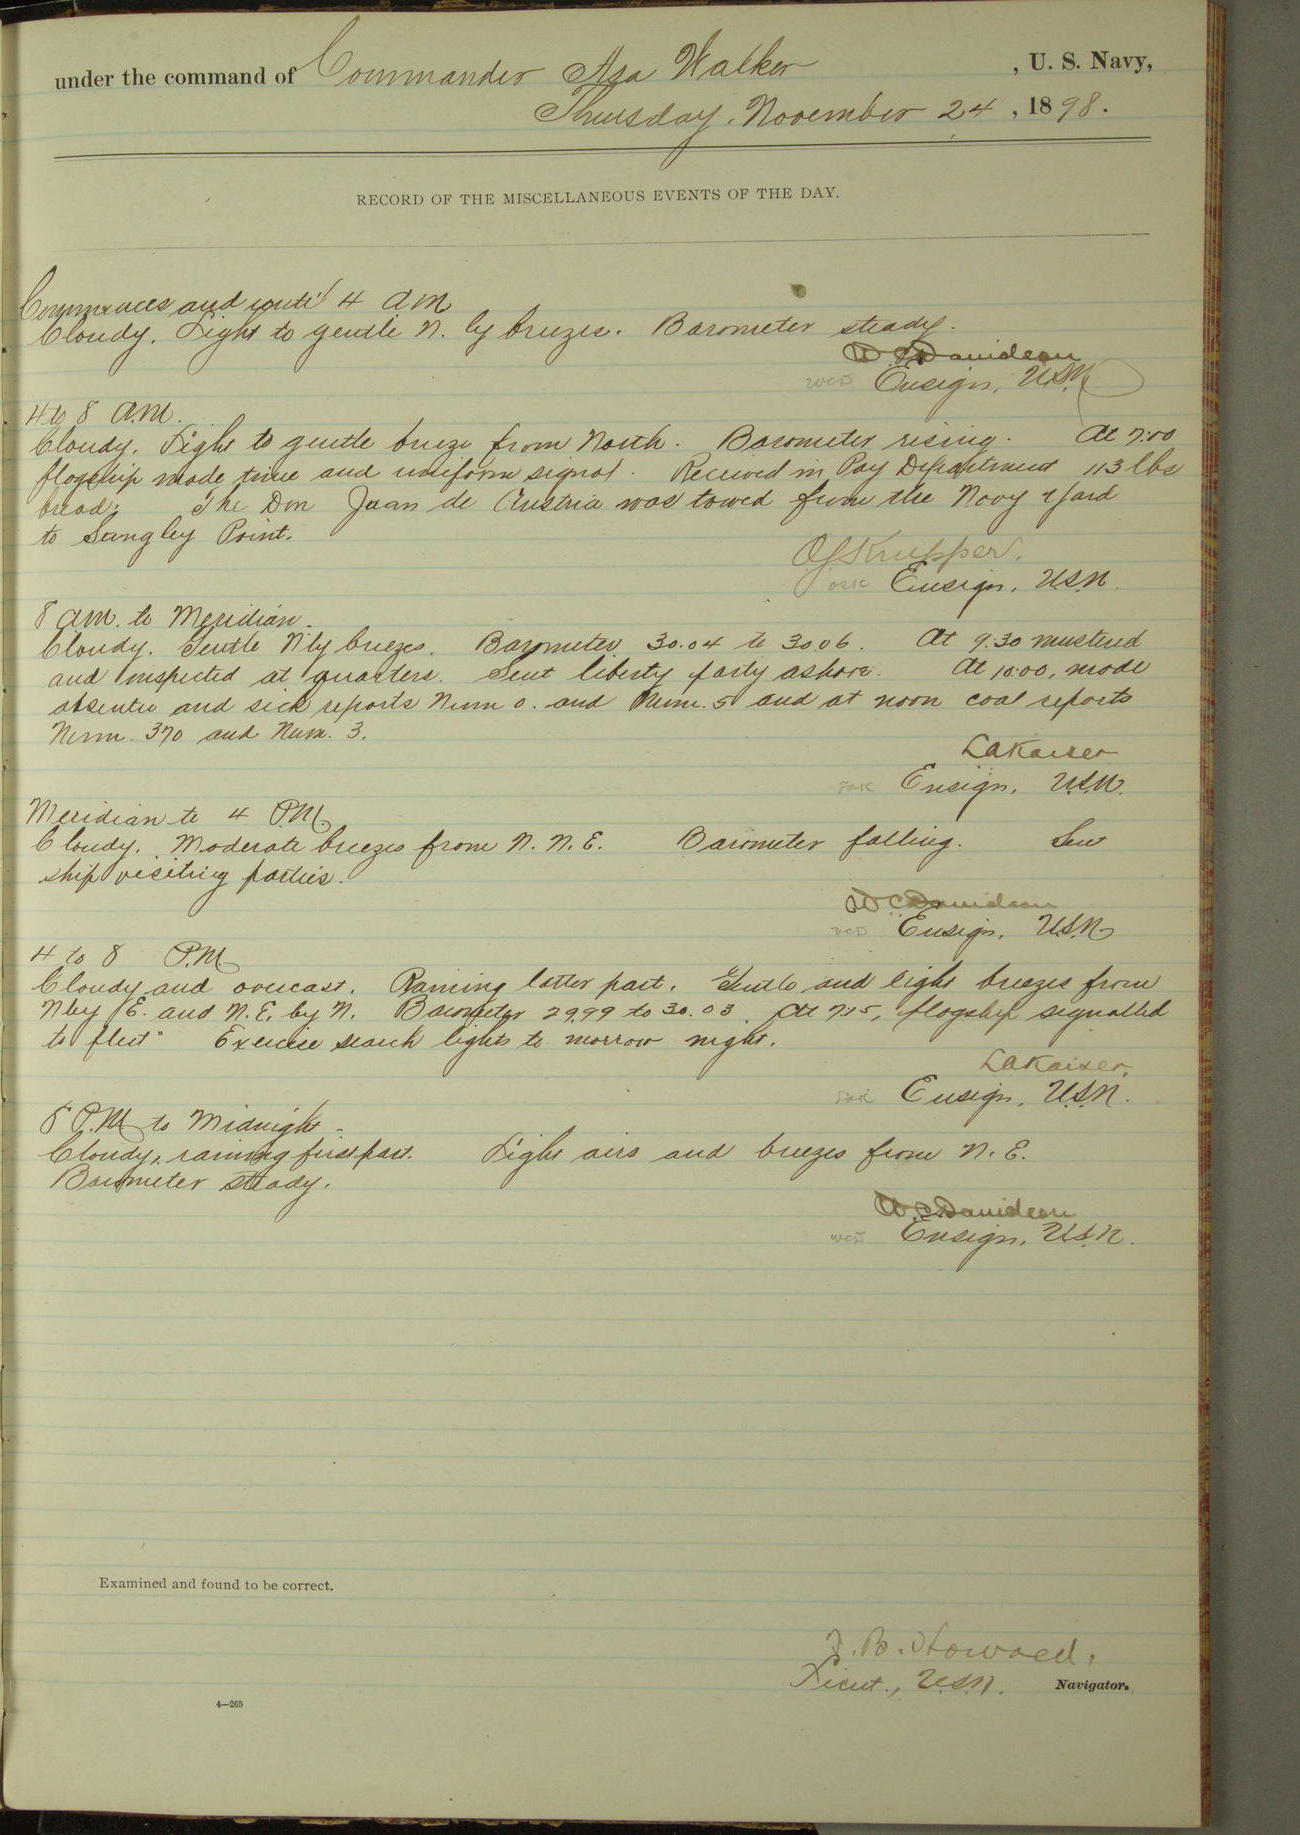 under the command of Commander Asa Walker, U. S. Navy,
Thursday, November 24, 1898.
RECORD OF THE MISCELLANEOUS EVENTS OF THE DAY.
Commences and until 4 AM
Cloudy. Light to gentle N. ly breezes. Barometer steady.
W C Davidson
WCD Ensign, USN
4 to 8 A.M.
Cloudy. Light to gentle breeze from North. Barometer rising. At 7:00
flagship made time and uniform signal. Received in Pay Department 113 lbs
bread. The Don Juan de Austria was towed from the Navy Yard
to Sangley Point.
Knepper.
OSK Ensign, U.S.N.
8 AM. to Meridian.
Cloudy. Gentle N'ly breezes. Barometer 30.04 to 30.06. At 9.30 mustered
and inspected at quarters. Sent liberty party ashore. At 10:00, made
absentee and sick reports Num 0. and Num. 5 and at noon coal reports
Num. 370 and Num. 3.
LAKaiser
Ensign, U.S.N.
Meridian to 4 P.M.
Cloudy. Moderate breezes from N. N. E. Barometer falling. Few
ship visiting parties.
W C Davidson
WCD Ensign, U.S.N.
4 to 8 P.M.
Cloudy and overcast. Raining latter part. Gentle and light breezes from
N by E. and N. E. by N. Barometer 29.99 to 30.03. At 7:15, flagship signalled
to fleet " Exercise search lights to morrow night.
LAKaiser.
Ensign, U.S.N.
8 P.M. to Midnight.
Cloudy, raining first part. Light airs and breezes from N. E.
Barometer steady.
W. C. Davidson
WCD Ensign, U.S.N.
Examined and found to be correct.
B. Howard,
Lieut., U.S.N. Navigator.
4—265